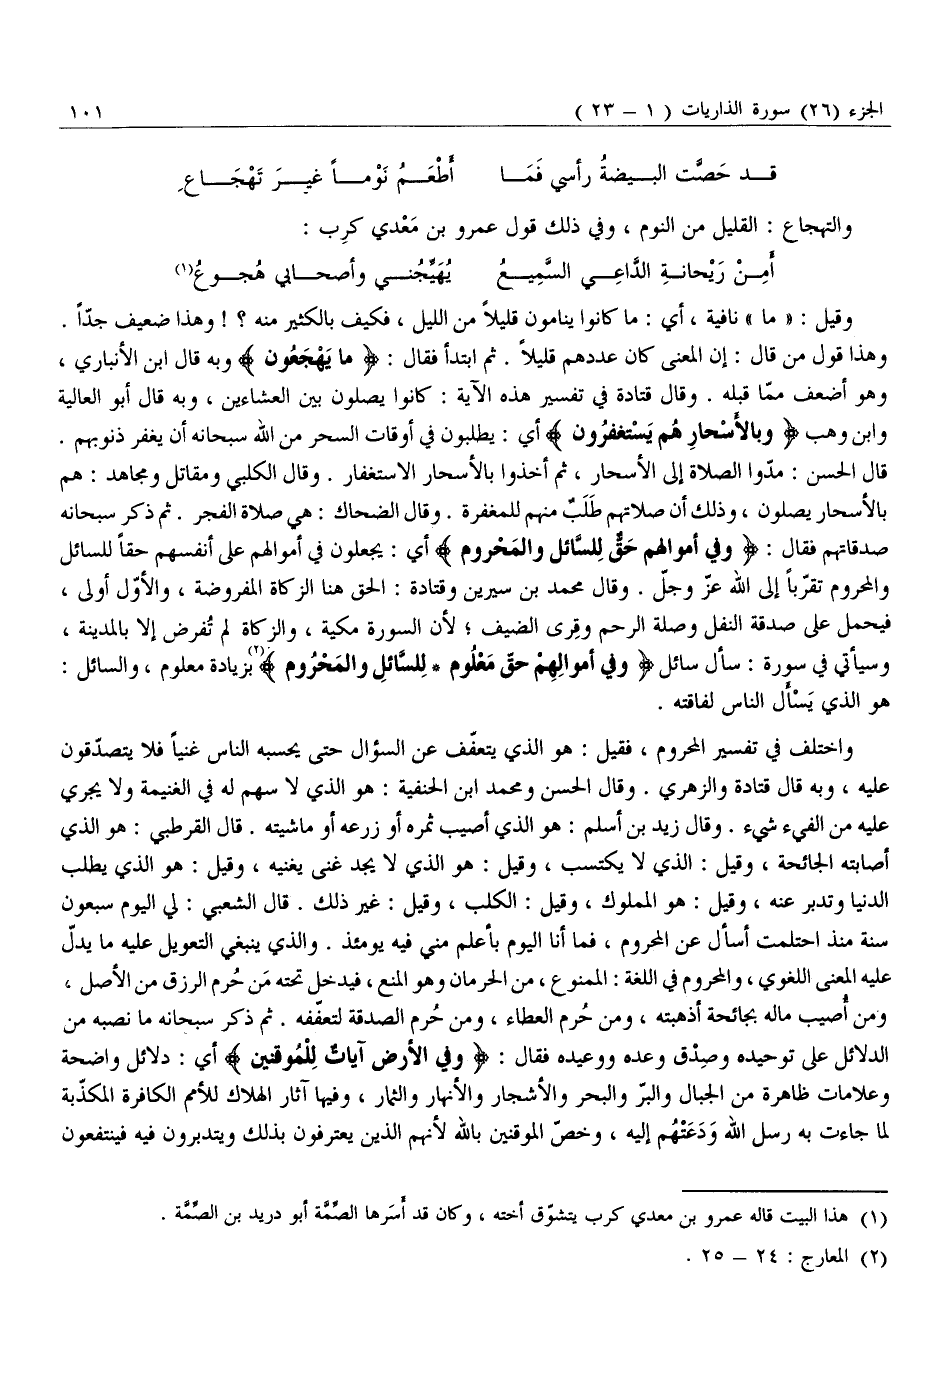 الجزء (٢٦) سورة الذاريات ( ١ – ٢٣ ) ١٠١
قــد حَصَّت البــيضةُ رأسي فَمَــا أَطْعَــمُ نَوْمــاً غيــرَ تَهْجَــاعِ
والتهجاع : القليل من النوم ، وفي ذلك قول عمرو بن مَعْدي كرِب :
أَمِـنْ رَيْحانـةِ الدَّاعـي السَّميـعُ يُهَيِّجُنــي وأصحــابي هُجــوعُ(١)
وقيل : « ما » نافية ، أي : ما كانوا ينامون قليلاً من الليل ، فكيف بالكثير منه ؟ ! وهذا ضعيف جدّاً .
وهذا قول من قال : إن المعنى كان عددهم قليلاً . ثم ابتدأ فقال : ﴿ ما يَهْجَعُون ﴾ وبه قال ابن الأنباري ،
وهو أضعف ممّا قبله . وقال قتادة في تفسير هذه الآية : كانوا يصلون بين العشاءين ، وبه قال أبو العالية
وابن وهب ﴿ وبالأَسْحارِ هُم يَسْتغفرُون ﴾ أي : يطلبون في أوقات السحر من الله سبحانه أن يغفر ذنوبهم .
قال الحسن : مدّوا الصلاة إلى الأسحار ، ثم أخذوا بالأسحار الاستغفار . وقال الكلبي ومقاتل ومجاهد : هم
بالأسحار يصلون ، وذلك أن صلاتهم طَلَبٌ منهم للمغفرة . وقال الضحاك : هي صلاة الفجر . ثم ذكر سبحانه
صدقاتهم فقال : ﴿ وفي أموالهم حَقٌّ لِلسَّائل والمَحْروم ﴾ أي : يجعلون في أموالهم على أنفسهم حقاً للسائل
والمحروم تقرّباً إلى الله عزّ وجلّ . وقال محمد بن سيرين وقتادة : الحق هنا الزكاة المفروضة ، والأوّل أولى ،
فيحمل على صدقة النفل وصلة الرحم وقِرى الضيف ؛ لأن السورة مكية ، والزكاة لم تُفرض إلا بالمدينة ،
وسيأتي في سورة : سأل سائل ﴿ وفي أموالِهِمْ حقّ مَعْلُوم * لِلسَّائلِ والمَحْرُوم ﴾(٢) بزيادة معلوم ، والسائل :
هو الذي يَسْأَل الناس لفاقته .
واختلف في تفسير المحروم ، فقيل : هو الذي يتعفّف عن السؤال حتى يحسبه الناس غنياً فلا يتصدّقون
عليه ، وبه قال قتادة والزهري . وقال الحسن ومحمد ابن الحنفية : هو الذي لا سهم له في الغنيمة ولا يجري
عليه من الفيء شيء . وقال زيد بن أسلم : هو الذي أصيب ثمره أو زرعه أو ماشيته . قال القرطبي : هو الذي
أصابته الجائحة ، وقيل : الذي لا يكتسب ، وقيل : هو الذي لا يجد غنى يغنيه ، وقيل : هو الذي يطلب
الدنيا وتدبر عنه ، وقيل : هو المملوك ، وقيل : الكلب ، وقيل : غير ذلك . قال الشعبي : لي اليوم سبعون
سنة منذ احتلمت أسأل عن المحروم ، فما أنا اليوم بأعلم مني فيه يومئذ . والذي ينبغي التعويل عليه ما يدلّ
عليه المعنى اللغوي ، والمحروم في اللغة : الممنوع ، من الحرمان وهو المنع ، فيدخل تحته مَن حُرم الرزق من الأصل ،
ومن أُصيب ماله بجائحة أذهبته ، ومن حُرم العطاء ، ومن حُرم الصدقة لتعفّفه . ثم ذكر سبحانه ما نصبه من
الدلائل على توحيده وصِدْق وعده ووعيده فقال : ﴿ وفي الأرض آياتٌ لِلْمُوقنين ﴾ أي : دلائل واضحة
وعلامات ظاهرة من الجبال والبرّ والبحر والأشجار والأنهار والثمار ، وفيها آثار الهلاك للأمم الكافرة المكذّبة
لما جاءت به رسل الله وَدَعَتْهُم إليه ، وخصّ الموقنين بالله لأنهم الذين يعترفون بذلك ويتدبرون فيه فينتفعون
(١) هذا البيت قاله عمرو بن معدي كرب يتشوّق أخته ، وكان قد أَسَرها الصِّمَّة أبو دريد بن الصِّمَّة .
(٢) المعارج : ٢٤ – ٢٥ .